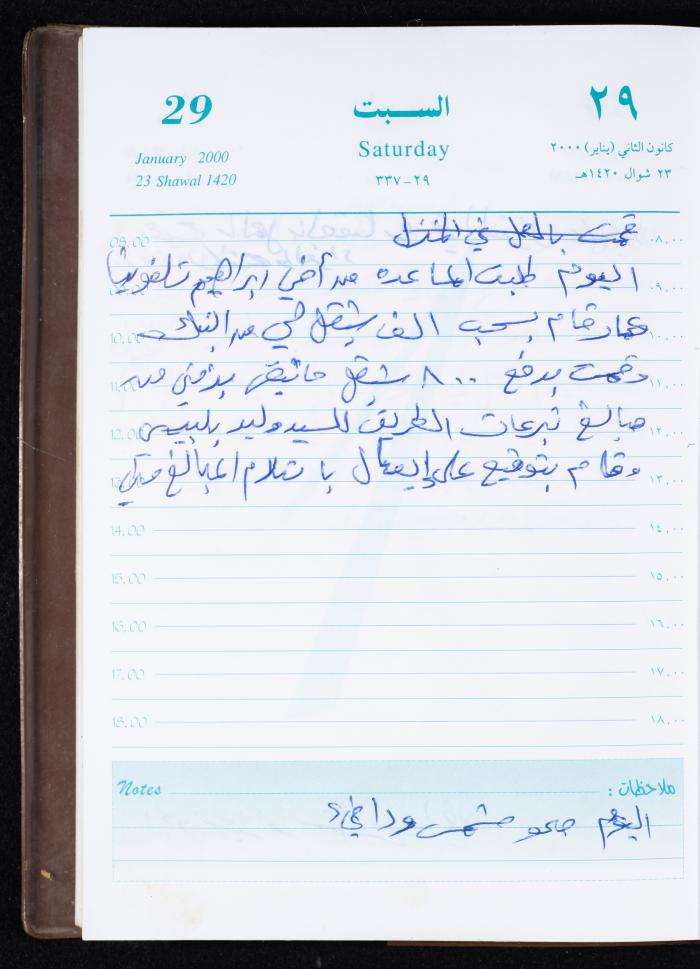 29
السبت
٢٩
January 2000
Saturday
كانون الثاني (يناير) ٢٠٠٠
23 Shawal 1420
٢٩-٣٣٧
٢٣ شوال ١٤٢٠هـ
08.00 قمت بالعمل في المنزل ٨,٠٠
اليوم طلبت المساعده من أخي ابراهيم تلفونيا ٩,٠٠
10.00 وقام بسحب الف شيقل لي من البنك ١٠,٠٠
11.00 وقمت بدفع ٨٠٠ شيقل من ١١,٠٠
12.00 تبرعات الطريق للسيد وليد ١٢,٠٠
وقام بتوقيع على ايصال باستلام المبالغ مني ١٣,٠٠
14.00 ١٤,٠٠
15.00 ١٥,٠٠
16.00 ١٦,٠٠
17.00 ١٧,٠٠
18.00 ١٨,٠٠
Notes ملاحظات :
اليوم صحو مشمس ودافيء